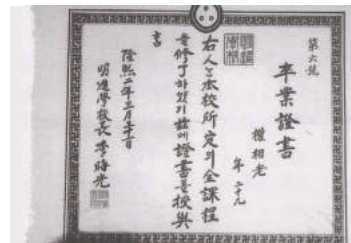 第六號
卒業證書
權相老
年二十九
右人은本校所定의全課程
을修了하얏기玆에證書를授與
隆熙二年三月
明進學校長李晦光